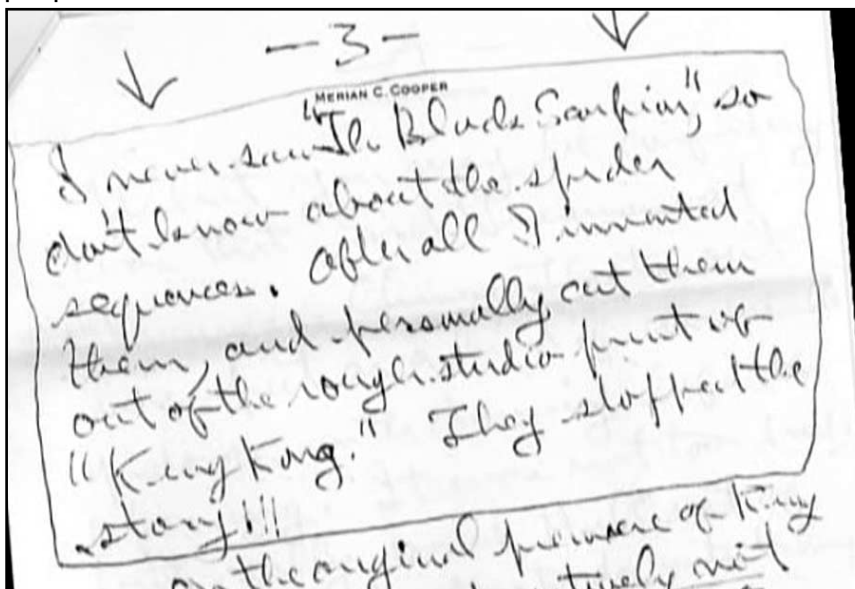 -3-
MERIAN C. COOPER
I never saw "The Black Scorpion", so
don't know about the spider
sequences. After all I invented
them, and personally cut them
out of the rough studio print of
"King Kong." They stopped the
story!!!
the original premiere of King
not